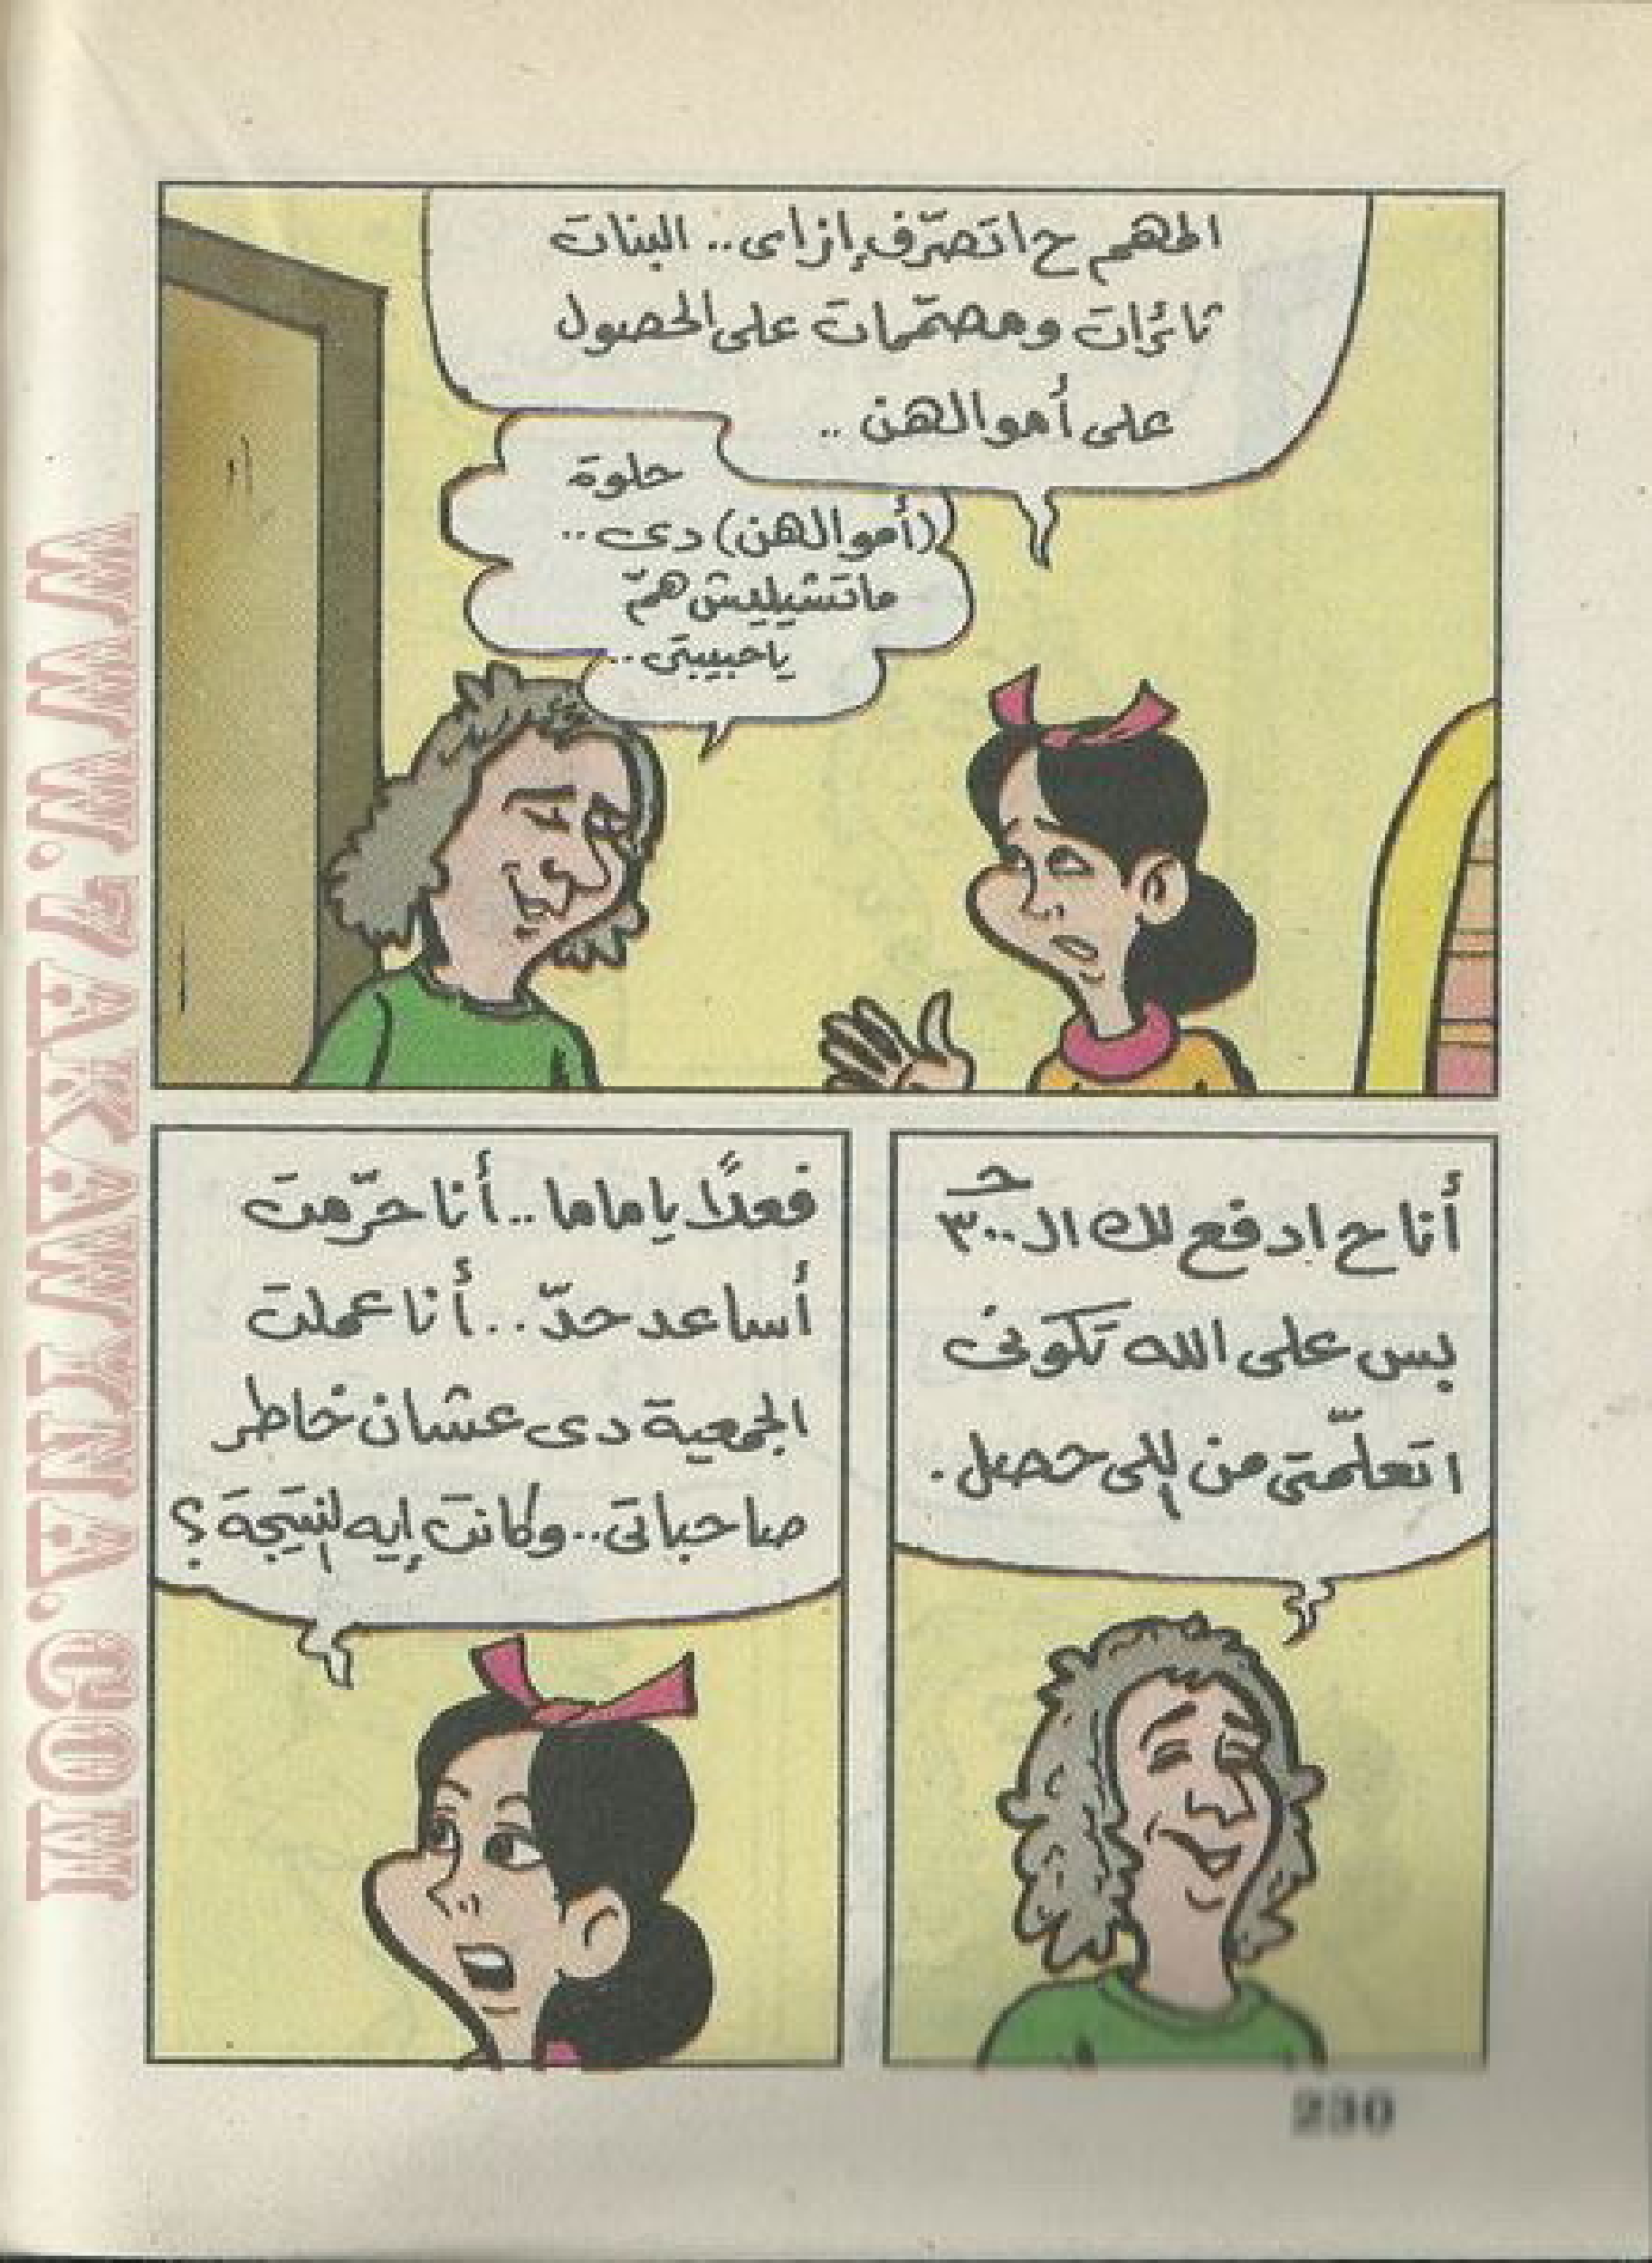 المهم ح اتصرّف إزاى.. البنات
ثائرات ومصمّمات على الحصول
على أموالهن ..
حلوة
(أموالهن) دى ..
ماتشيليش همّ
ياحبيبتى ..
أنا ح ادفع لك الـ ٣٠٠ جـ
بس على الله تكونى
اتعلّمتى من اللى حصل .
فعلًا ياماما .. أنا حرّمت
أساعد حدّ .. أنا عملت
الجمعية دى عشان خاطر
صاحباتى .. وكانت إيه النتيجة ؟
230
WWW.7AKAWINA.COM